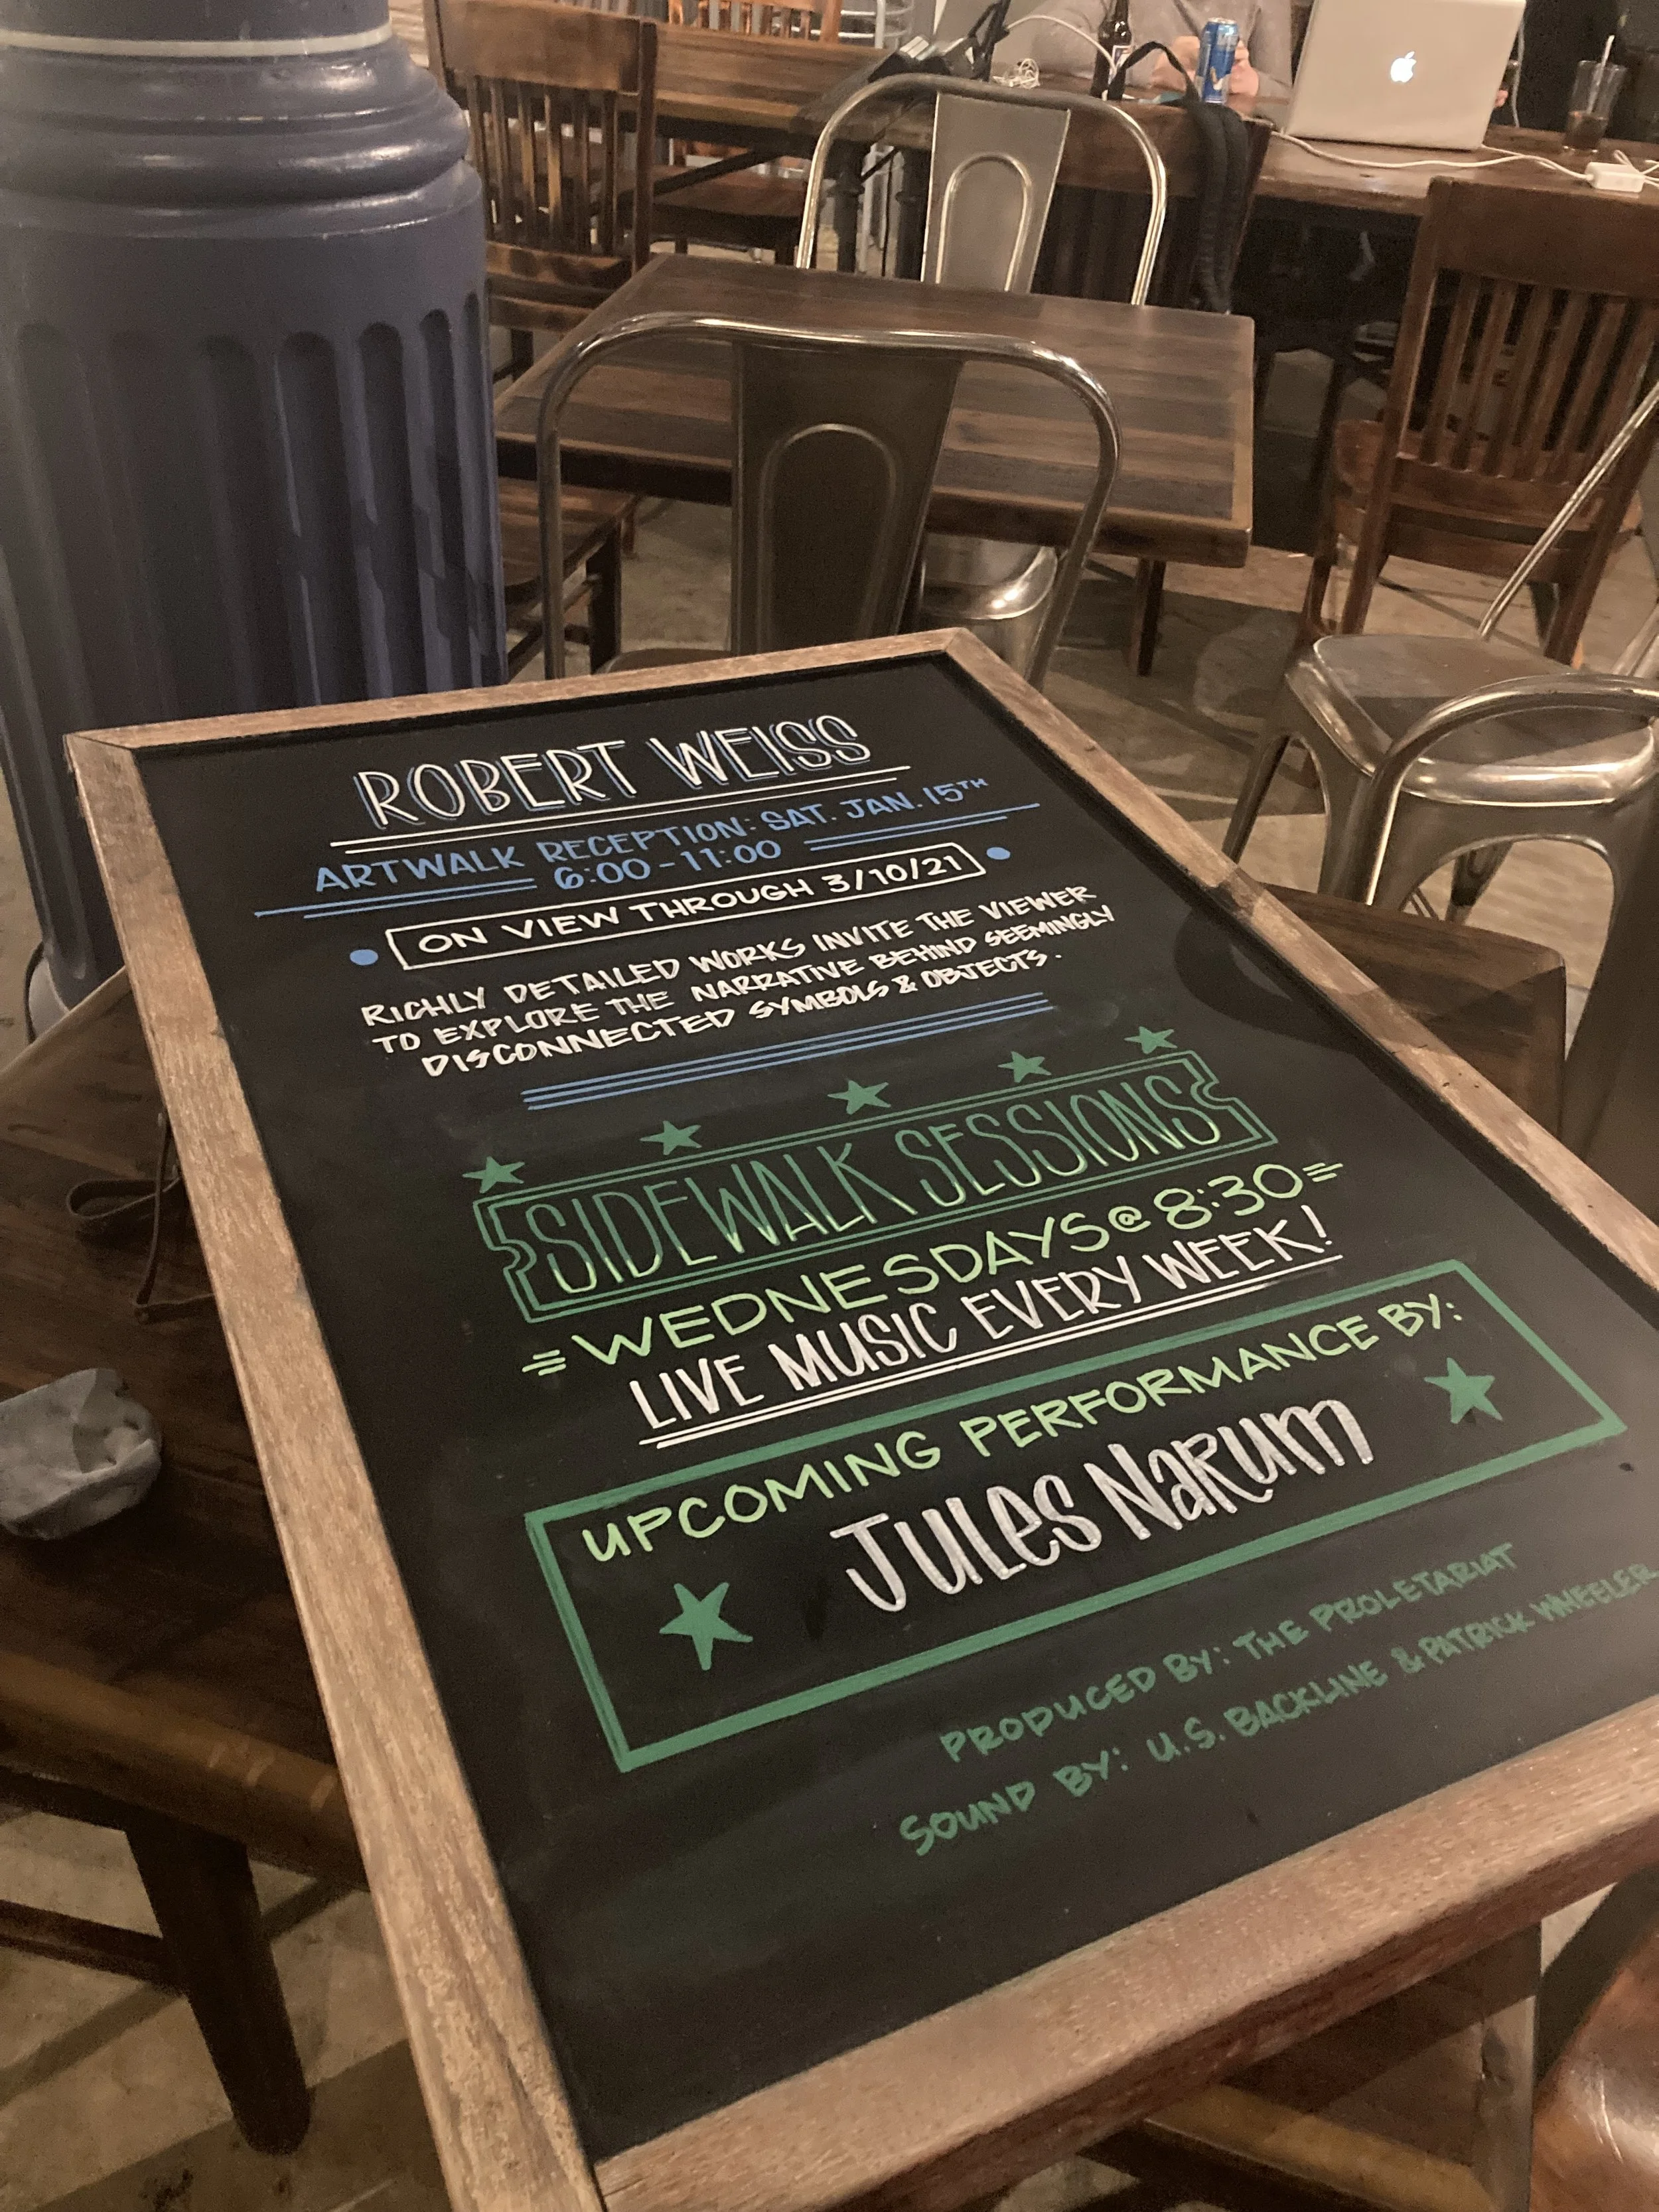 ROBERT WEISS
ARTWALK RECEPTION: SAT. JAN. 15TH
6:00-11:00
ON VIEW THROUGH 3/10/21
RICHLY DETAILED WORKS INVITE THE VIEWER
TO EXPLORE THE NARRATIVE BEHIND SEEMINGLY
DISCONNECTED SYMBOLS & OBJECTS.
SIDEWALK SESSIONS
WEDNESDAYS @ 8:30
LIVE MUSIC EVERY WEEK!
UPCOMING PERFORMANCE BY:
JULES NARUM
PRODUCED BY: THE PROLETARIAT
SOUND BY: U.S. BACKLINE & PATRICK WHEELER